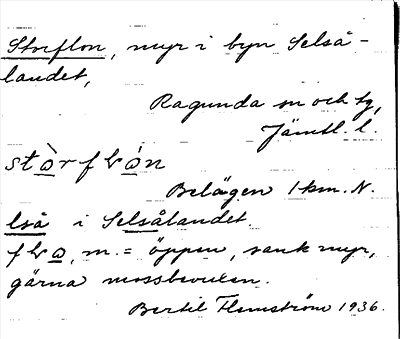 Storflon, myr i byn Selså-
landet,
Ragunda sn och tg,
Jämtl. l.
stòrflón
Belägen 1 km. N.
lså i Selsålandet.
flo, m. = öppen, sank myr,
gärna mossbevuxen.
Bertil Flemström 1936.